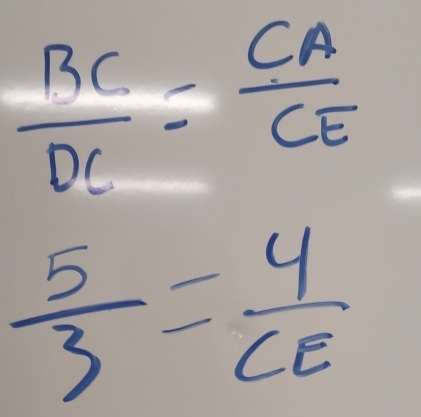 BC/DC = CA/CE
5/3 = 4/CE